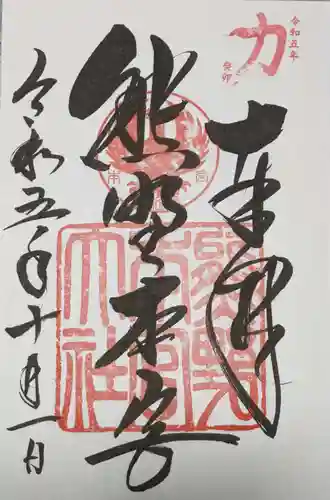 力
令和五年
癸卯
奉拝
熊野本宮
令和五年十月一日
熊野
本宮
大社